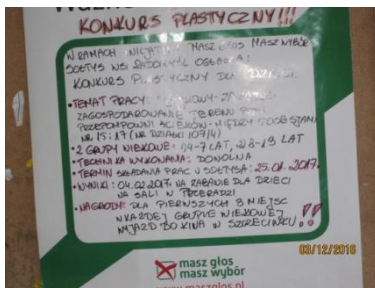 KONKURS PLASTYCZNY!!!
W RAMACH MASZ GŁOS MASZ WYBÓR
SOŁTYS WSI RADOMYŚL OGŁASZA:
KONKURS PLASTYCZNY DLA DZIECI.
• TEMAT PRACY:
ZAGOSPODAROWANIE TERENU
PRZEPOMPOWNI ŚCIEKÓW - MIĘDZY POSESJAMI
NR 15 i 17 (NR DZIAŁKI 107/4)
• 2 GRUPY WIEKOWE: 4-7 LAT, 8-13 LAT
• TECHNIKA WYKONANIA: DOWOLNA
• TERMIN SKŁADANIA PRAC U SOŁTYSA: 25.01.2017.
• WYNIKI: 04.02.2017r. NA ZABAWIE DLA DZIECI
NA SALI W PRZERADZI
• NAGRODY: DLA PIERWSZYCH 3 MIEJSC
W KAŻDEJ GRUPIE WIEKOWEJ
WYJAZD DO KINA W SZCZECINKU!!
03/12/2016
masz głos
masz wybór
www.maszglos.pl